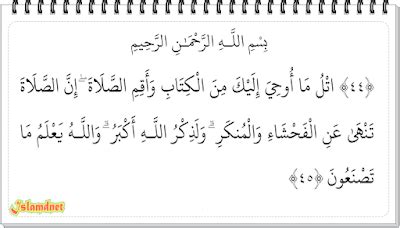 بِسْمِ اللَّـهِ الرَّحْمَـٰنِ الرَّحِيمِ
﴿٤٤﴾ اتْلُ مَا أُوحِيَ إِلَيْكَ مِنَ الْكِتَابِ وَأَقِمِ الصَّلَاةَ ۖ إِنَّ الصَّلَاةَ
تَنْهَىٰ عَنِ الْفَحْشَاءِ وَالْمُنكَرِ ۗ وَلَذِكْرُ اللَّـهِ أَكْبَرُ ۗ وَاللَّـهُ يَعْلَمُ مَا
تَصْنَعُونَ ﴿٤٥﴾
islamdnet